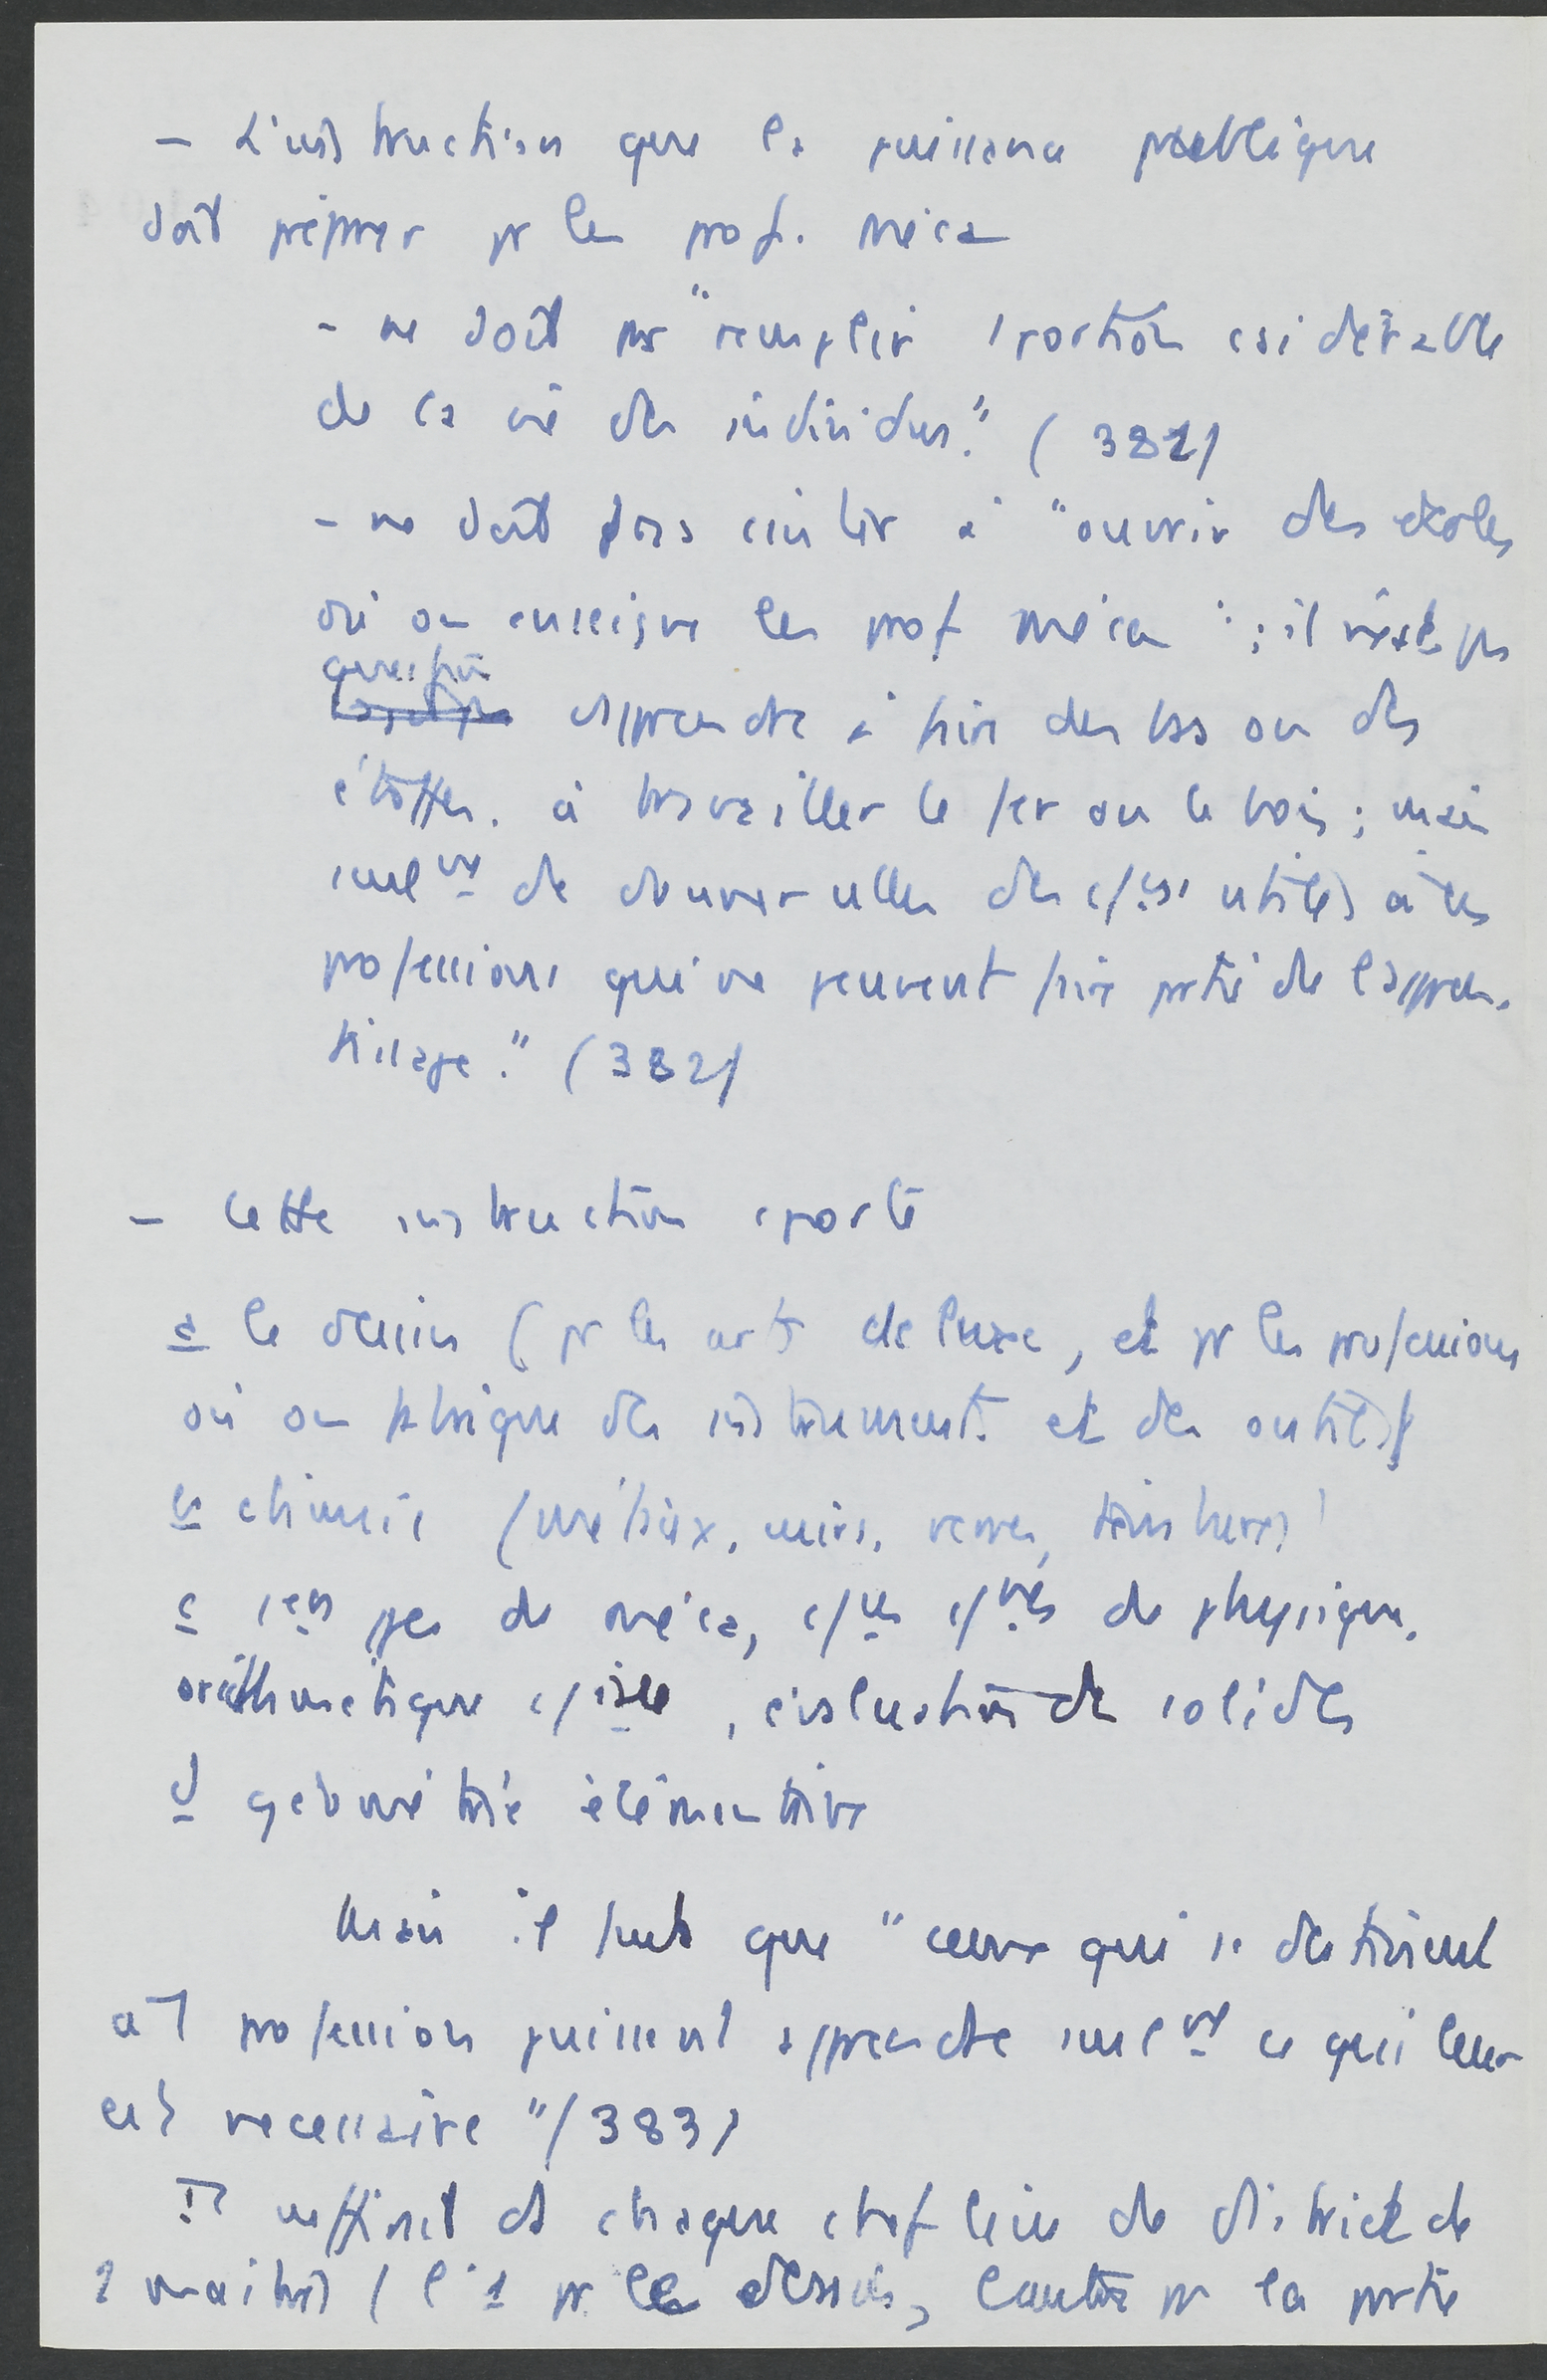 - L'instruction que la puissance publique
doit préparer pr les prof. méca
- ne doit pas "remplir 1 portion csidérable
de la vie des individus." (382)
- ne doit pas csister à "ouvrir des écoles
où on enseigne les prof méca" ; il n'est pas
question
apprendre à faire des bas ou des
étoffes. à travailler le fer ou le bois ; mais
seulnt de donner celles des c/ces utiles à ces
professions qui ne peuvent faire partie de l'appren-
tissage." (382)
- Cette instruction cporte
a le dessin (pr les arts de luxe, et pr les professions
où on fabrique des instruments et des outils)
b chimie (métaux, cuirs, verres, teintures)
c de méca, de physique,
arithmétique c/iale, évaluation des solides
d géométrie élémentaire
Mais il faut que "ceux qui se destinent
à 1 profession puissent apprendre seulnt ce qui leur
est nécessaire" (383)
Il suffirait ds chaque chef lieu de district de
2 maîtres (l'1 pr le dessin, l'autre pr la partie